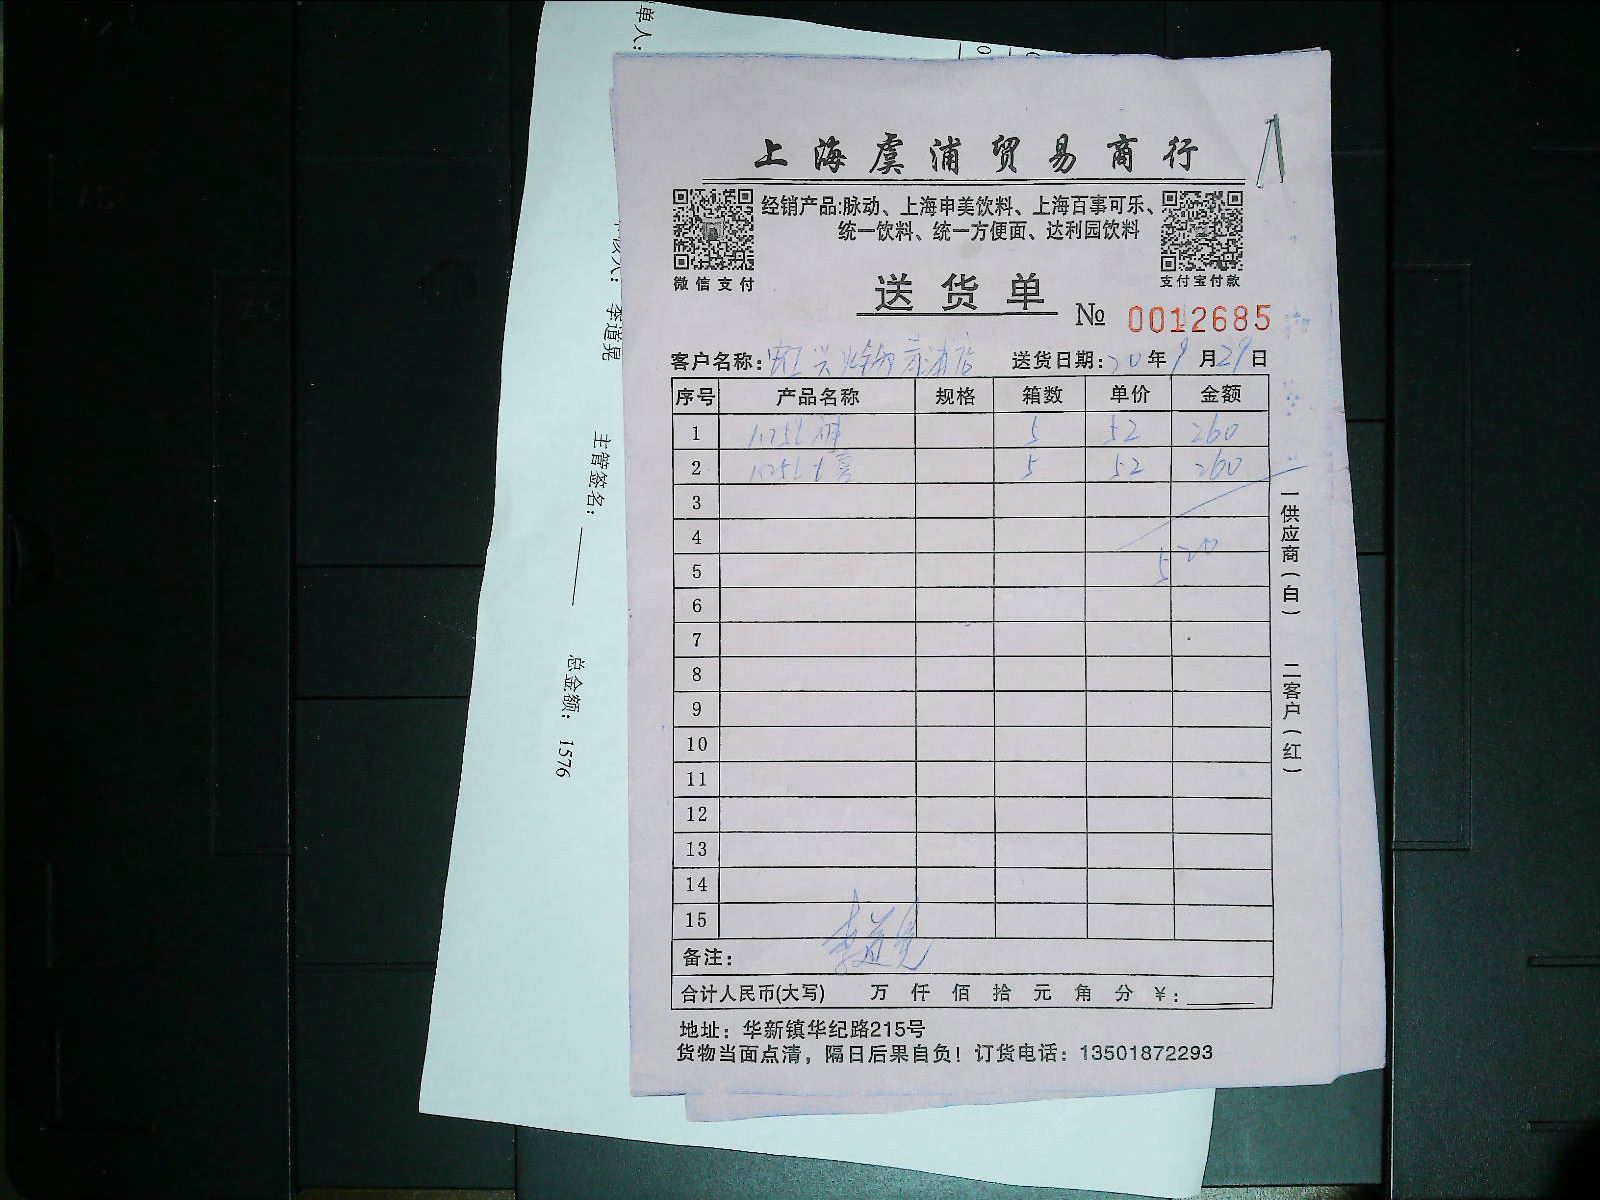 上海虞浦贸易商行
经销产品:脉动、上海申美饮料、上海百事可乐、
统一饮料、统一方便面、达利园饮料
微信支付
支付宝付款
送货单
№ 0012685
客户名称: 送货日期:20年9月29日
序号 产品名称 规格 箱数 单价 金额
1 1.25L 5 52 260
2 1.25L 5 52 260
3
4
5 520
6
7
8
9
10
11
12
13
14
15
备注: 李道晃
合计人民币(大写) 万 仟 佰 拾 元 角 分 ¥:
地址: 华新镇华纪路215号
货物当面点清,隔日后果自负! 订货电话: 13501872293
一供应商(白) 二客户(红)
单人:
李道晃
主管签名:
总金额: 1576